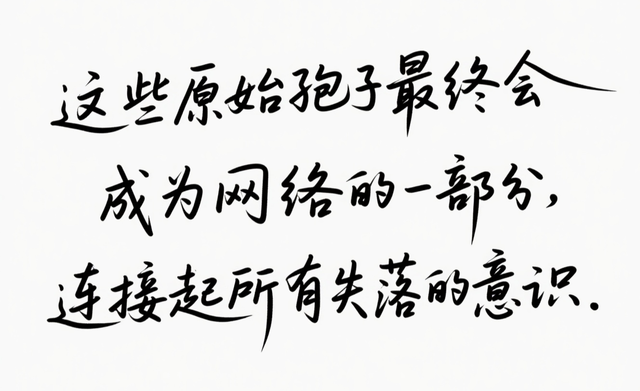 这些原始孢子最终会
成为网络的一部分,
连接起所有失落的意识.